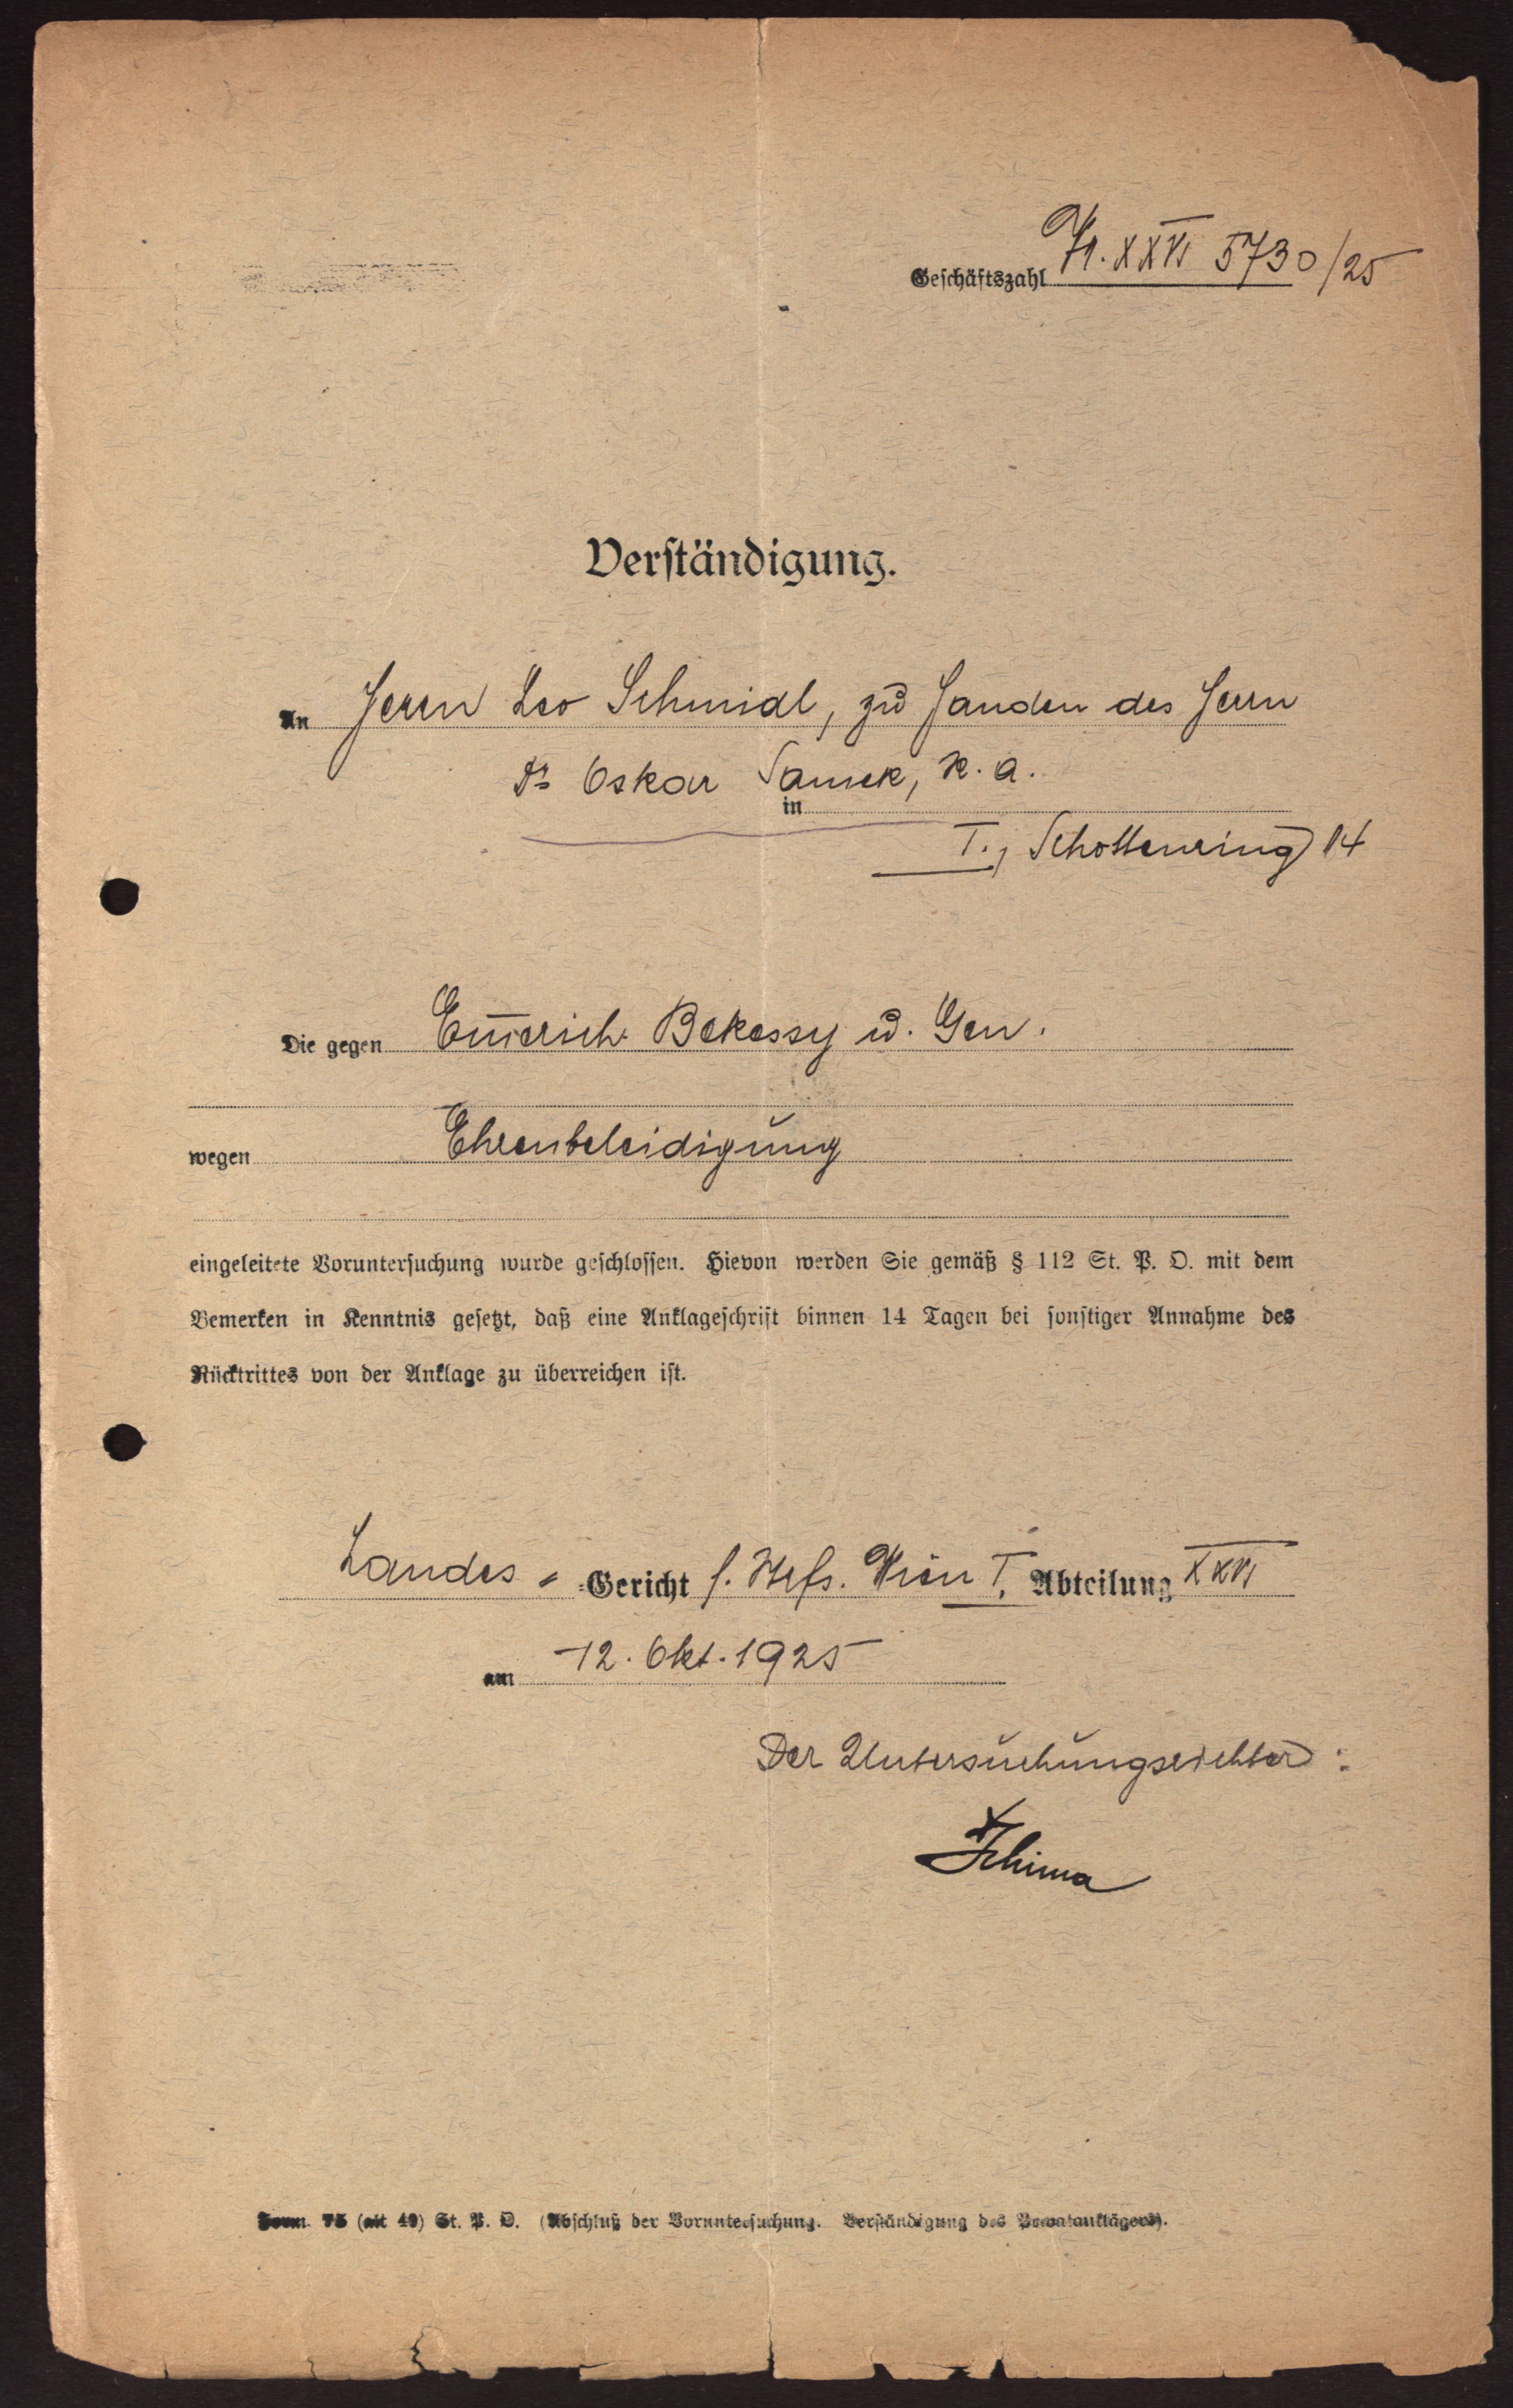 Geschäftszahl Vr. XXVI 5730/25
Verständigung.
An Herrn Leo Schmidl, zu Handen des Herrn
Dr Oskar Samek, R. A.
in
I., Schottenring 14
Die gegen Emerich Bekessy u. Gen.
wegen Ehrenbeleidigung
eingeleitete Voruntersuchung wurde geschlossen. Hievon werden Sie gemäß § 112 St. P. O. mit dem
Bemerken in Kenntnis gesetzt, daß eine Anklageschrift binnen 14 Tagen bei sonstiger Annahme des
Rücktrittes von der Anklage zu überreichen ist.
Landes-Gericht f. Strfs. Wien I, Abteilung XXVI
am 12. Okt. 1925
Der Untersuchungsrichter:
Schima
Form. 75 (alt 49) St. P. O. (Abschluß der Voruntersuchung. Verständigung des Privatanklägers).